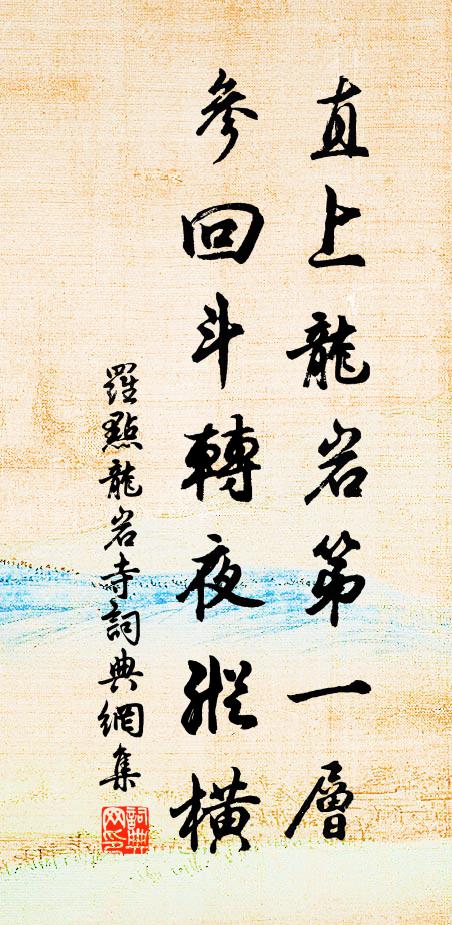 直上龍岩第一層
參回斗轉夜縱橫
羅點龍岩寺詞典網集
詞典網印